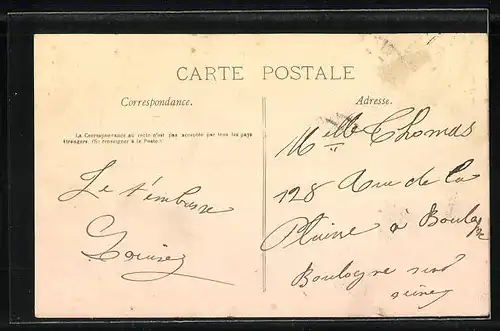 CARTE POSTALE
Correspondance.
Adresse.
La Correspondance au recto n'est pas acceptée par tous les pays
étrangers. (Se renseigner à la Poste.)
Je t'embrasse
Louise
Melle Thomas
128 Rue de la
Plaine à Boulogne
Boulogne sur
seine